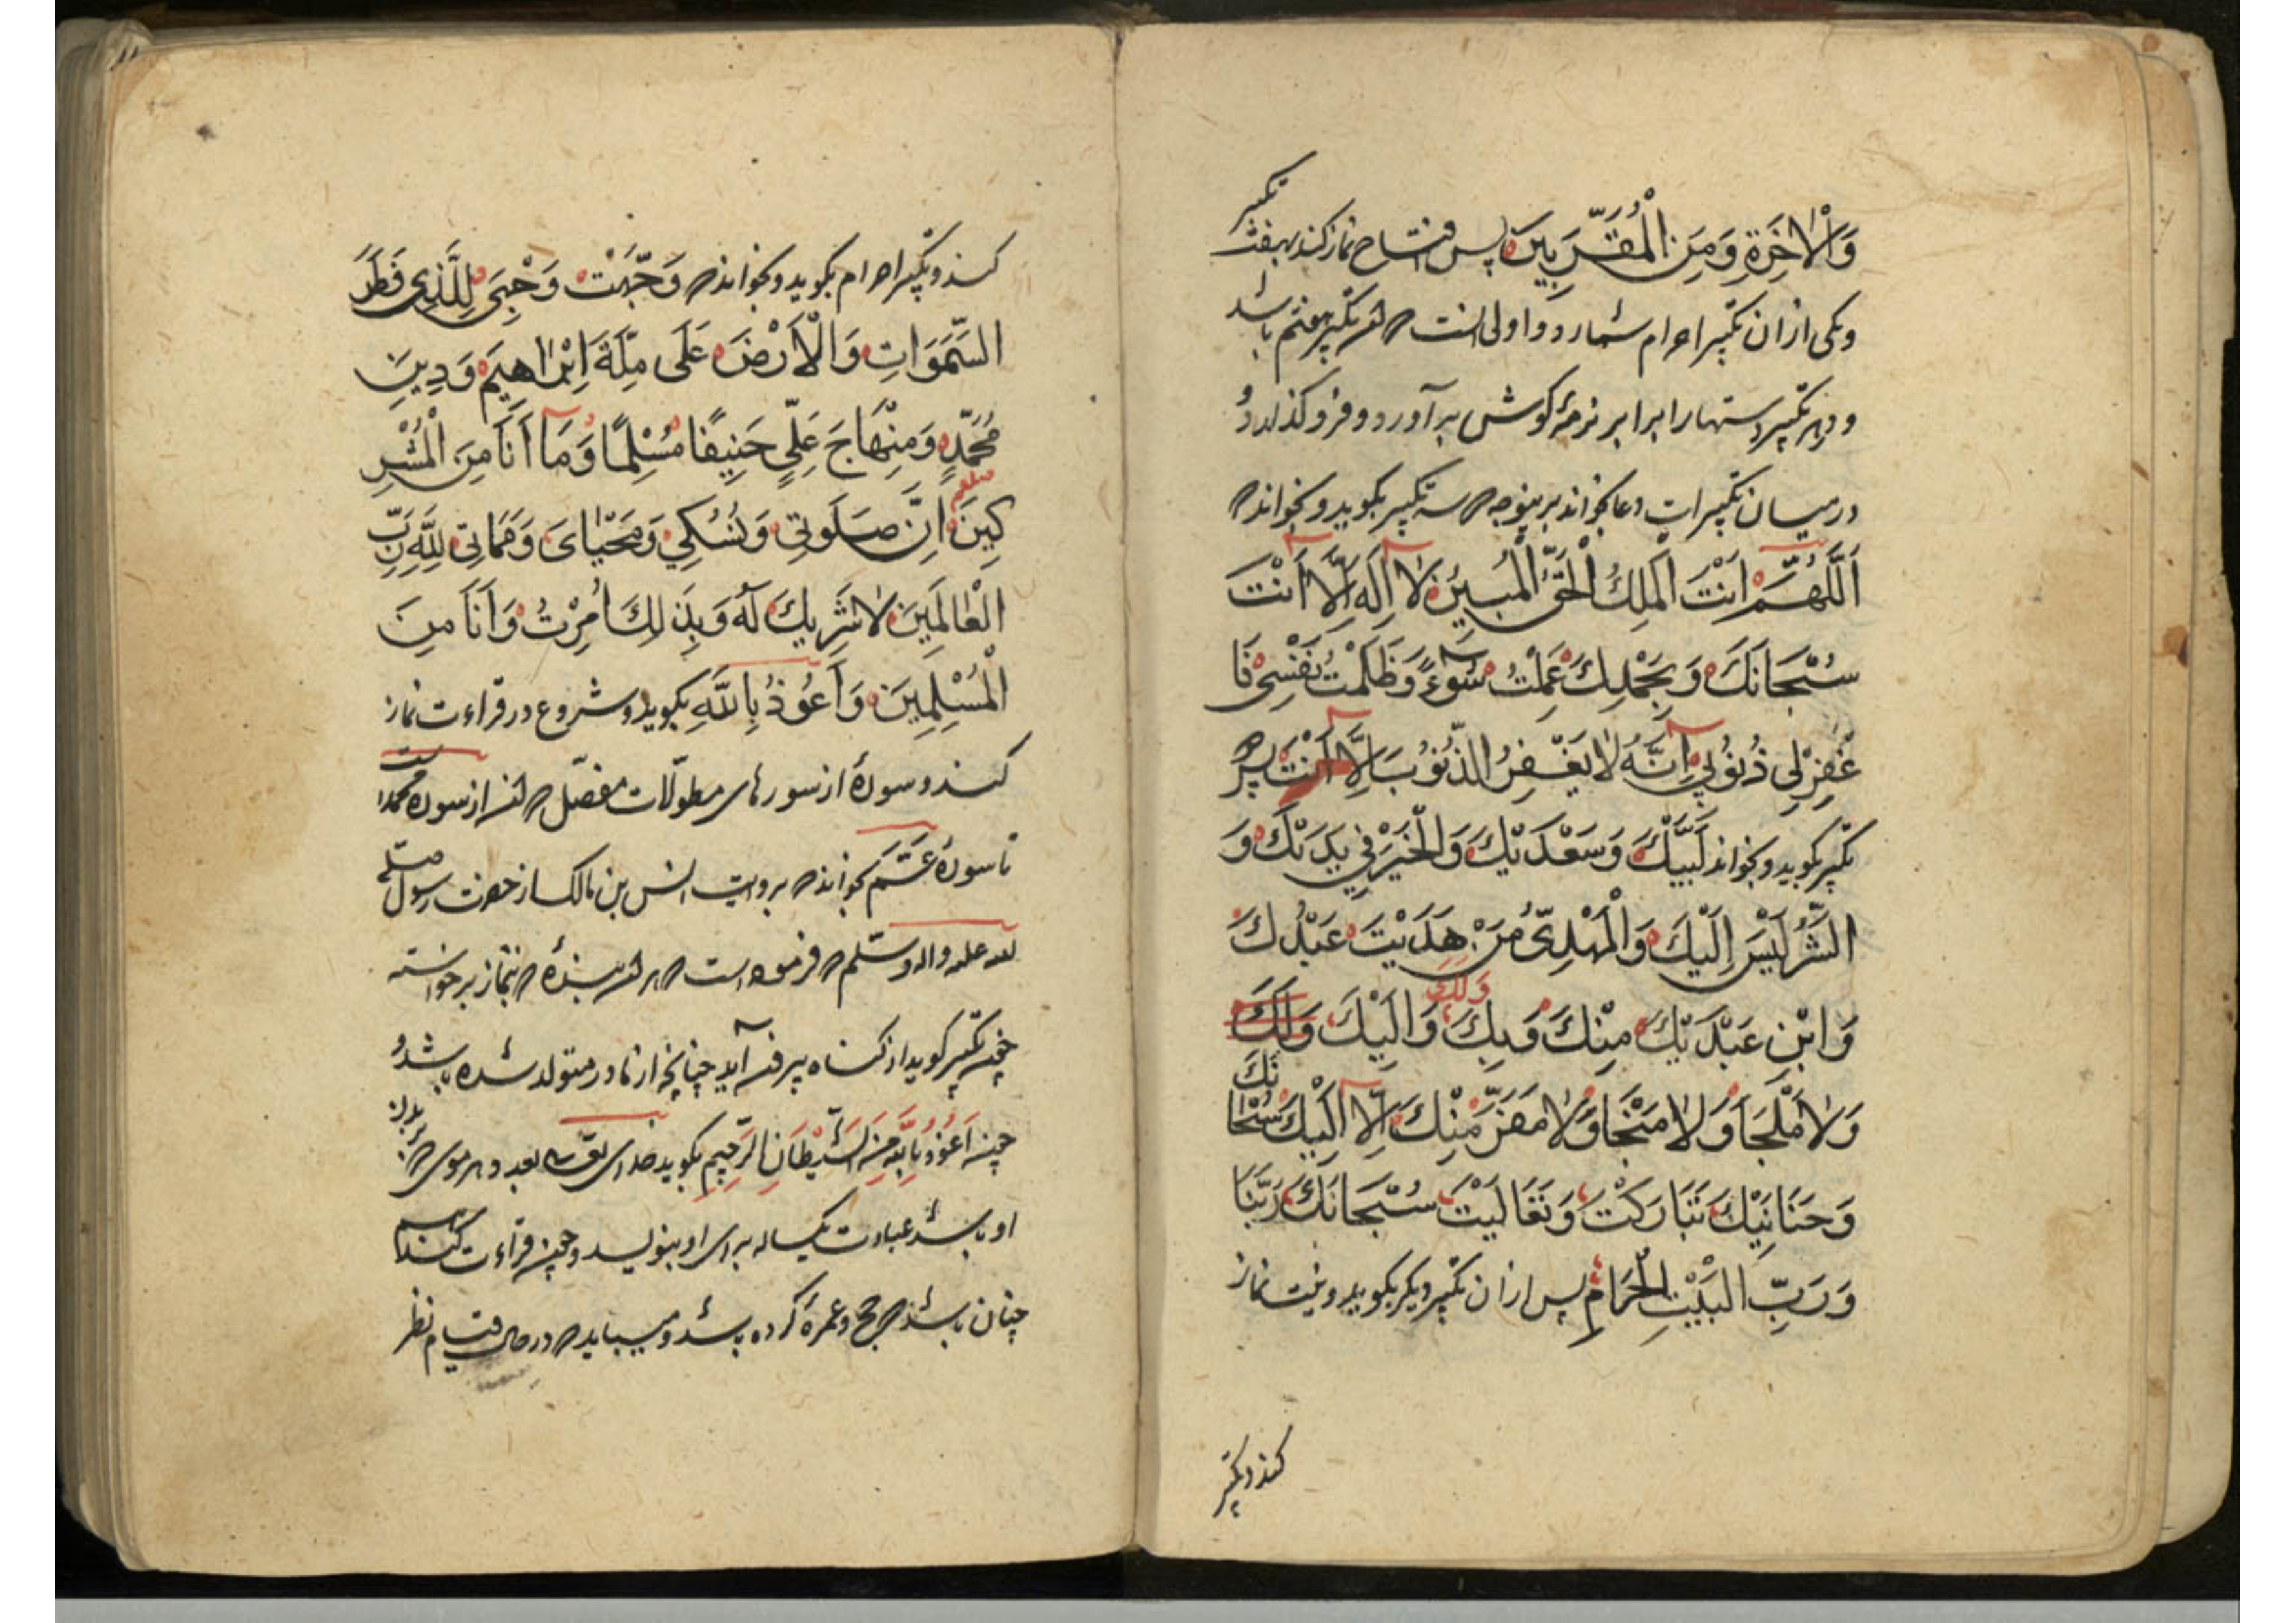 وَالْاٰخِرَةِ وَمِنَ الْمُقَرَّبِينَ پس افتتاح نماز کند بهفت تکبیر
ویکی ازان تکبیر احرام شمارد و اولی انست که تکبیر هفتم باشد
و در هر تکبیر دستها را برابر نرمهٔ کوش بر آورد و فرو کذارد و
در میان تکبیرات دعا بخواند برینوجه که سه تکبیر بکوید و بخواند که
اَللّٰهُمَّ اَنْتَ الْمَلِكُ الْحَقُّ الْمُبِينُ لَا اِلٰهَ اِلَّا اَنْتَ
سُبْحَانَكَ وَبِحَمْدِكَ عَمِلْتُ سُوءً وَظَلَمْتُ نَفْسِي فَا
غْفِرْ لِي ذُنُوبِي اِنَّهُ لَا يَغْفِرُ الذُّنُوبَ اِلَّا اَنْتَ پس
تکبیر بکوید و بخواند لَبَّيْكَ وَسَعْدَيْكَ وَالْخَيْرُ فِي يَدَيْكَ وَ
الشَّرُّ لَيْسَ اِلَيْكَ وَالْمَهْدِيُّ مَنْ هَدَيْتَ عَبْدُكَ
وَابْنِ عَبْدَيْكَ مِنْكَ وَبِكَ وَلَكَ وَاِلَيْكَ وَلَكَ
وَلَا مَلْجَأَ وَلَا مَنْجَا وَلَا مَفَرَّ مِنْكَ اِلَّا اِلَيْكَ سُبْحَانَكَ
وَحَنَانَيْكَ تَبَارَكْتَ وَتَعَالَيْتَ سُبْحَانَكَ رَبَّنَا
وَرَبِّ الْبَيْتِ الْحَرَامِ پس ازان تکبیر دیکر بکوید و نیت نماز
کند و تکبیر
کند و تکبیر احرام بکوید و بخواند که وَجَّهْتُ وَجْهِيَ لِلَّذِي فَطَرَ
السَّمَوَاتِ وَالْاَرْضَ عَلَى مِلَّةِ اِبْرٰاهِيمَ وَدِينِ
مُحَمَّدٍ وَمِنْهَاجِ عَلِيٍّ حَنِيفًا مُسْلِمًا وَمَا اَنَا مِنَ الْمُشْرِ
كِينَ اِنَّ صَلَوتِي وَنُسُكِي وَمَحْيَايَ وَمَمَاتِي لِلّٰهِ رَبِّ
الْعَالَمِينَ لَا شَرِيكَ لَهُ وَبِذَلِكَ اُمِرْتُ وَاَنَا مِنَ
الْمُسْلِمِينَ وَاَعُوذُ بِاللّٰهِ بکوید و شروع در قراءت نماز
کند و سورهٔ از سورهای مطوّلات مفصّل که از سوره محمد است
تا سورهٔ عَمَّ بخواند که بروایت انس بن مالک از حضرت رسول صلی
الله علیه واله وسلّم که فرموده است که هر بندهٔ که بنماز برخواسته
چون تکبیر کوید از کناه بیرون آید چنانچه از مادر متولد شده باشد و
چون اَعُوذُ بِاللّٰهِ مِنَ الشَّيْطَانِ الرَّجِيمِ بکوید خدای تعالی بعدد هر موی که بر بدن
او باشد عبادت یکساله برای او بنویسد و چون قراءت کند
چنان باشد که حج و عمرهٔ کرده باشد و میباید که در حال قیام نظر